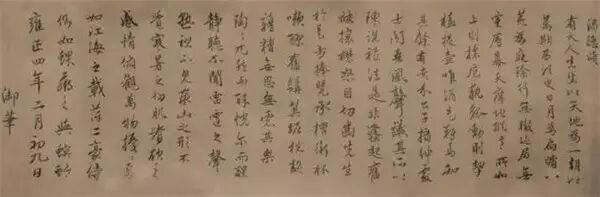 酒德頌
有大人先生以天地為一朝以
萬期為須臾日月為扃牖八
荒為庭除行無轍迹居無
室廬幕天席地縱意所如
止則操卮執觚動則挈
榼提壺唯酒是務焉知
其餘有貴介公子搢紳處
士聞吾風聲議其所以
陳說禮法是非鋒起奮
袂攘襟怒目切齒先生
於是方捧甖承槽銜杯
漱醪奮髯箕踞枕麴
藉糟無思無慮其樂
陶陶兀然而醉恍爾而醒
靜聽不聞雷霆之聲
熟視不見泰山之形不
覺寒暑之切肌嗜欲之
感情俯觀萬物擾擾焉
如江海之載萍二豪侍
側如蜾蠃之與螟蛉
雍正四年二月初九日
御筆